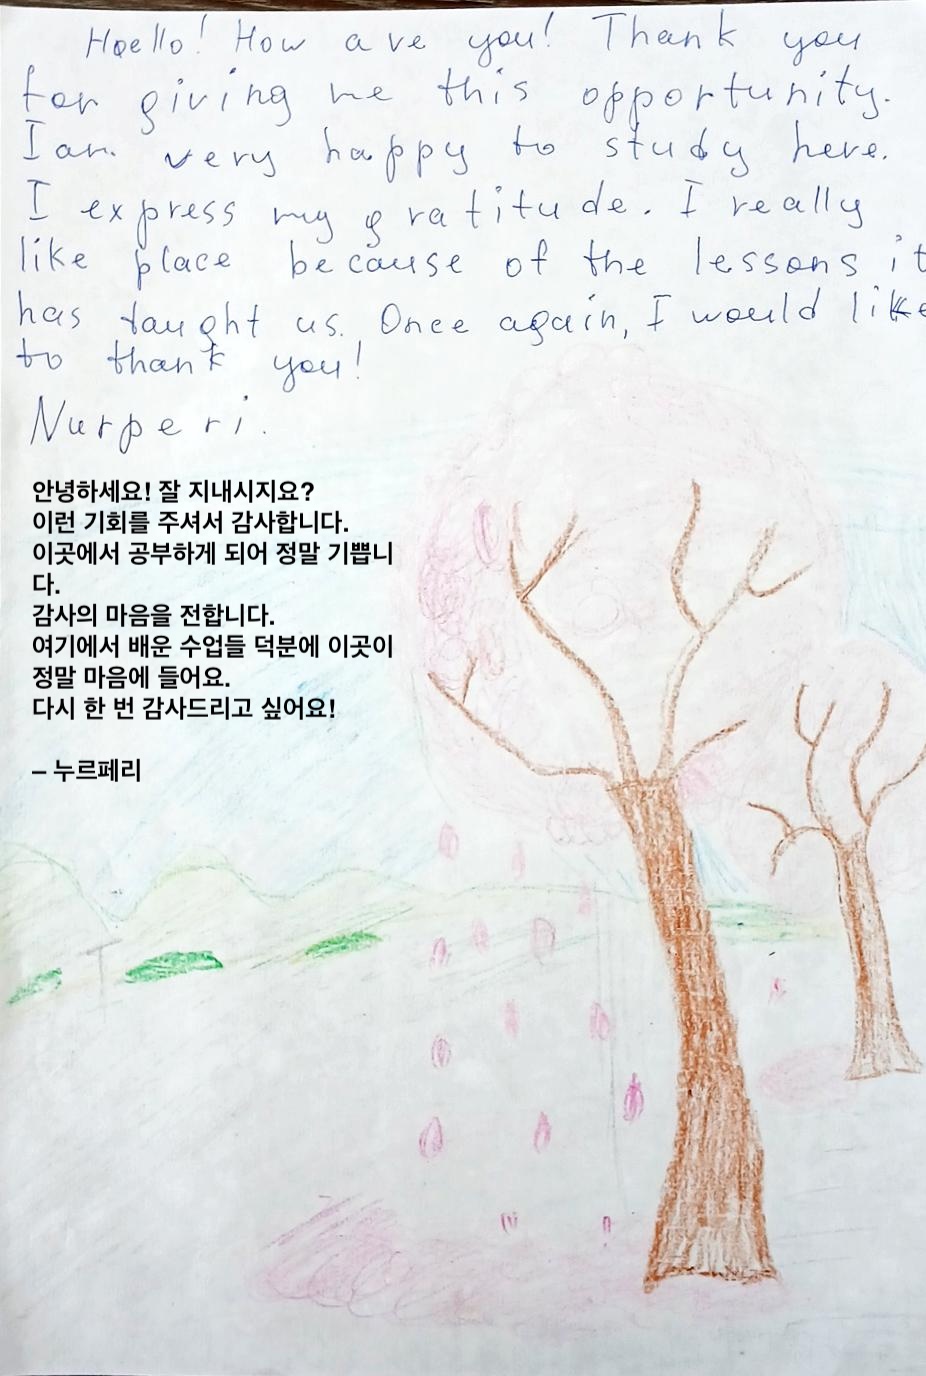 Hoello! How are you! Thank you
for giving me this opportunity.
I am very happy to study here.
I express my gratitude. I really
like place because of the lessons it
has taught us. Once again, I would like
to thank you!
Nurperi.
안녕하세요! 잘 지내시지요?
이런 기회를 주셔서 감사합니다.
이곳에서 공부하게 되어 정말 기쁩니
다.
감사의 마음을 전합니다.
여기에서 배운 수업들 덕분에 이곳이
정말 마음에 들어요.
다시 한 번 감사드리고 싶어요!
– 누르페리